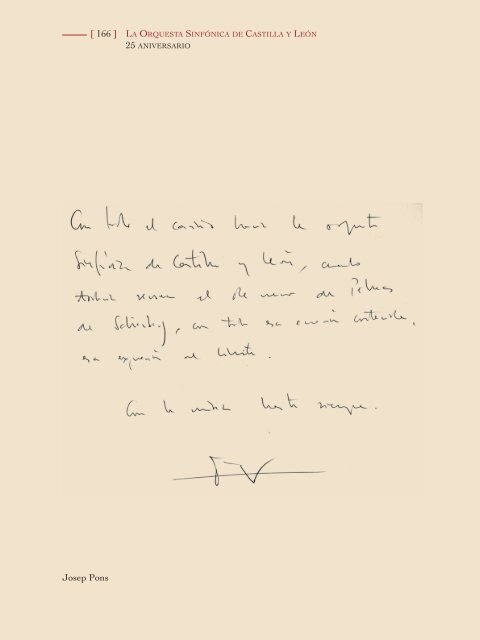 [ 166 ] La Orquesta Sinfónica de Castilla y León
25 aniversario
Con todo el cariño hacia la orquesta
Sinfónica de Castilla y León, cuando
el de Pelleas
de Schönberg, con toda esa emoción contenida,
esa expresión al límite.
Con la música hasta siempre.
Josep Pons